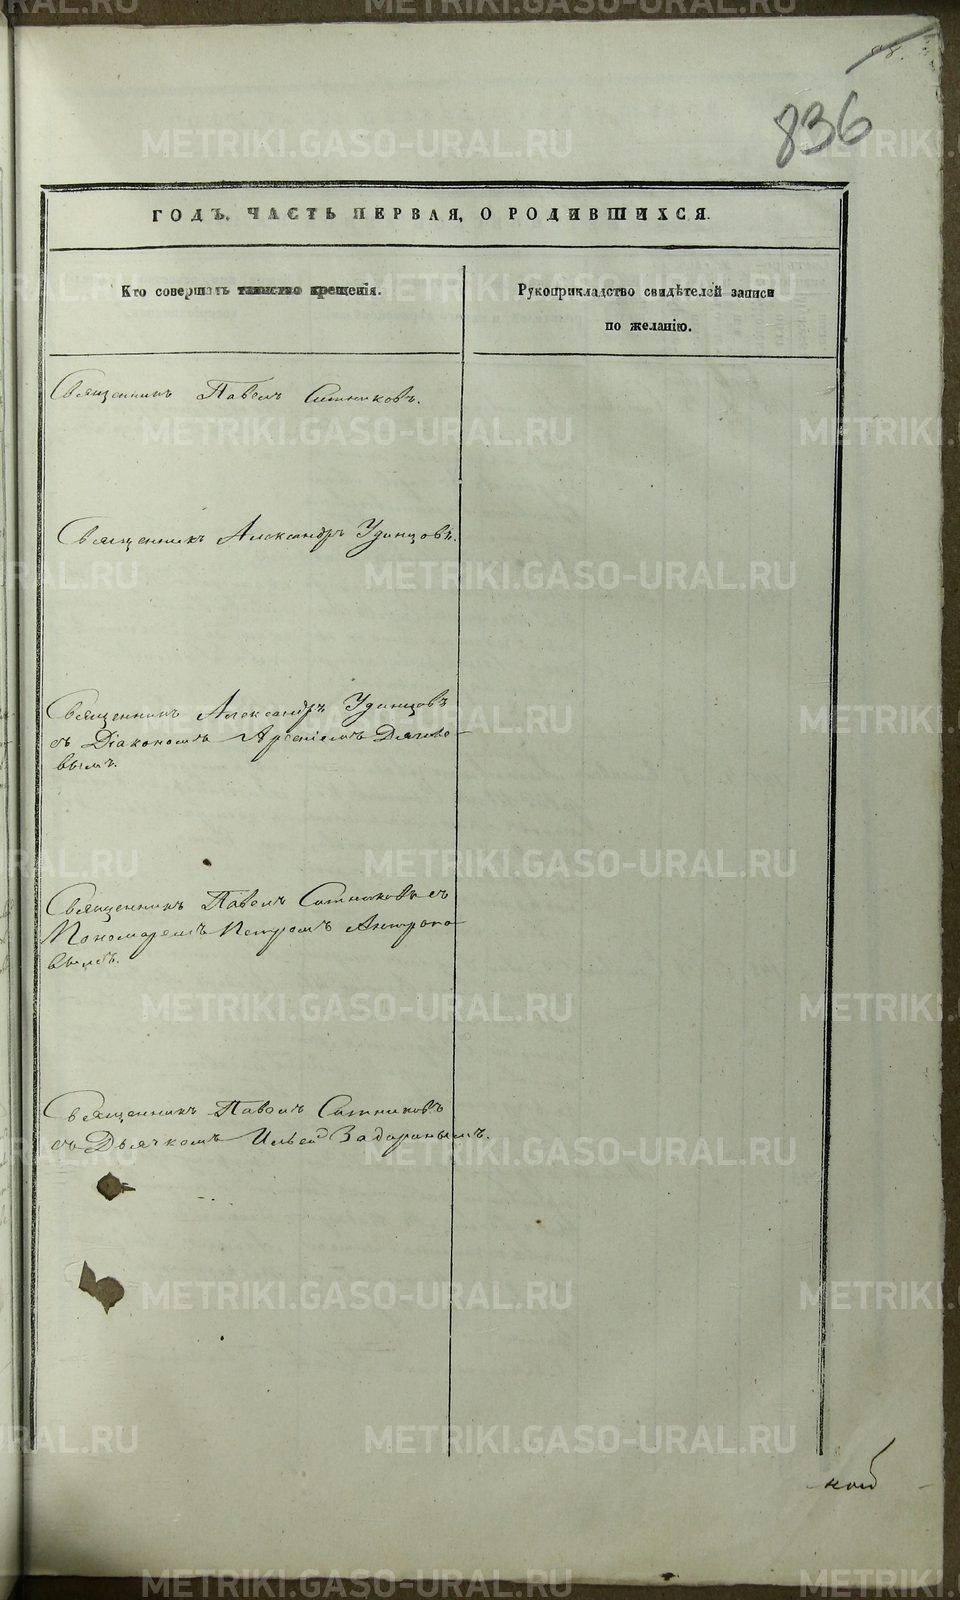 836
ГОДЪ. ЧАСТЬ ПЕРВАЯ, О РОДИВШИХСЯ.
Кто совершалъ таинство крещенія.
Рукоприкладство свидѣтелей записи
по желанію.
Священникъ Павелъ Ситниковъ.
Священникъ Александръ Удинцовъ.
Священникъ Александръ Удинцовъ
съ Діакономъ Арсеніемъ
вымъ.
Священникъ Павелъ Ситниковъ съ
Пономаремъ Петромъ Антропо-
вымъ.
Священникъ Павелъ Ситниковъ
съ Дьячкомъ Ильей Задоринымъ.
METRIKI.GASO-URAL.RU